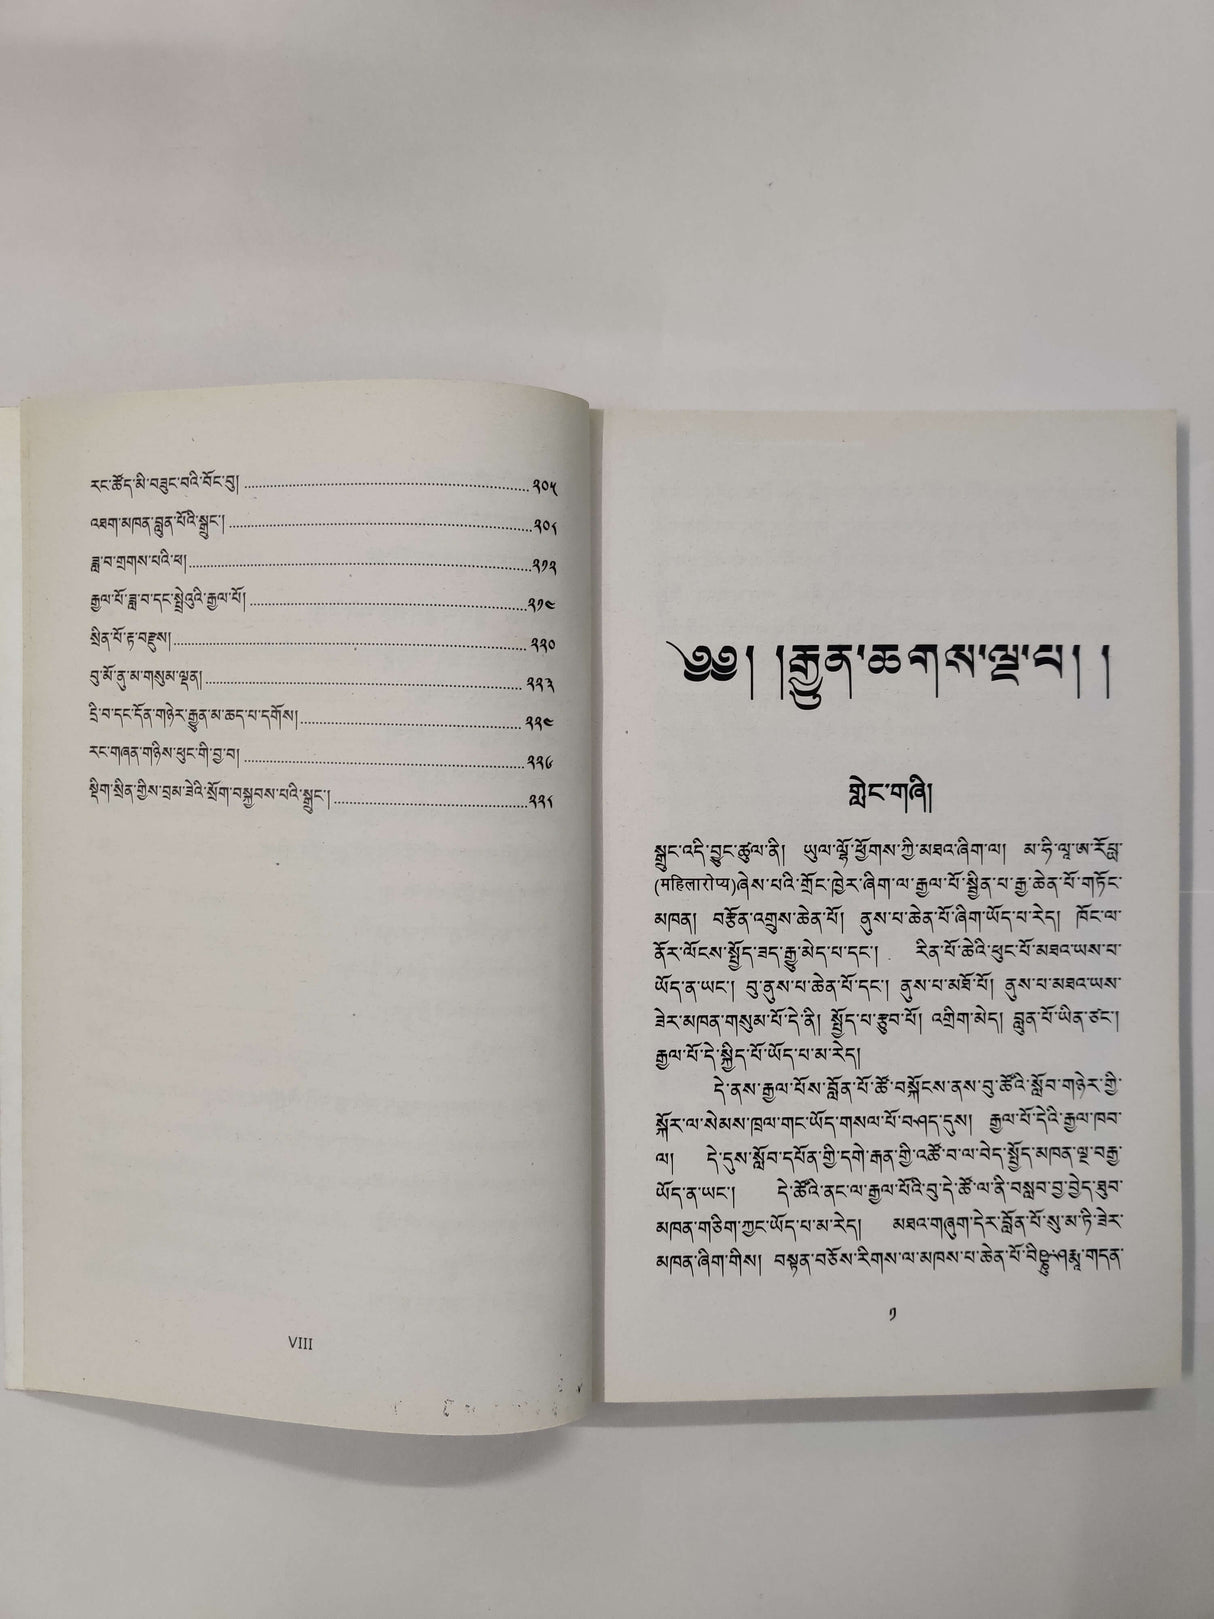 རང་ཚོད་མི་བཟུང་བའི་བོང་བུ། ༢༠༥
འཐག་མཁན་བླུན་པོའི་སྒྲུང་། ༢༠༨
ཟླ་བ་གྲགས་པའི་ཕ། ༢༡༢
རྒྱལ་པོ་ཟླ་བ་དང་སྤྲེའུའི་རྒྱལ་པོ། ༢༡༤
སྲིན་པོ་རྟ་བརྫུས། ༢༢༠
བུ་མོ་ནུ་མ་གསུམ་ལྡན། ༢༢༣
དྲི་བ་དང་དོན་གཉེར་རྒྱུན་མ་ཆད་པ་དགོས། ༢༢༤
རང་གཞན་གཉིས་ཕུང་གི་བྱ་བ། ༢༢༦
སྡིག་སྲིན་གྱིས་བྲམ་ཟེའི་སྲོག་བསྐྱབས་པའི་སྒྲུང་། ༢༢༨
VIII
༄༅། །རྒྱུན་ཆགས་ལྔ་པ། །
གླེང་གཞི།
སྒྲུང་འདི་བྱུང་ཚུལ་ནི། ཡུལ་ལྷོ་ཕྱོགས་ཀྱི་མཐའ་ཞིག་ལ། མ་ཧི་ལཱ་ཨ་རོཔྱ་
(महिलारोप्य)ཞེས་པའི་གྲོང་ཁྱེར་ཞིག་ལ་རྒྱལ་པོ་སྦྱིན་པ་རྒྱ་ཆེན་པོ་གཏོང་
མཁན། བརྩོན་འགྲུས་ཆེན་པོ། ནུས་པ་ཆེན་པོ་ཞིག་ཡོད་པ་རེད། ཁོང་ལ་
ནོར་ལོངས་སྤྱོད་ཟད་རྒྱུ་མེད་པ་དང་། རིན་པོ་ཆེའི་ཕུང་པོ་མཐའ་ཡས་པ་
ཡོད་ན་ཡང་། བུ་ནུས་པ་ཆེན་པོ་དང་། ནུས་པ་མཐོ་པོ། ནུས་པ་མཐའ་ཡས་
ཟེར་མཁན་གསུམ་པོ་དེ་ནི། སྤྱོད་པ་རྩུབ་པོ། འགྲིག་མེད། བླུན་པོ་ཡིན་ཙང་།
རྒྱལ་པོ་དེ་སྐྱིད་པོ་ཡོད་པ་མ་རེད།
དེ་ནས་རྒྱལ་པོས་བློན་པོ་ཚོ་བསྐོངས་ནས་བུ་ཚོའི་སློབ་གཉེར་གྱི་
སྐོར་ལ་སེམས་ཁྲལ་གང་ཡོད་གསལ་པོ་བཤད་དུས། རྒྱལ་པོ་དེའི་རྒྱལ་ཁབ་
ལ། དེ་དུས་སློབ་དཔོན་གྱི་དགེ་རྒན་གྱི་འཚོ་བ་ལ་བེད་སྤྱོད་མཁན་ལྔ་བརྒྱ་
ཡོད་ན་ཡང་། དེ་ཚོའི་ནང་ལ་རྒྱལ་པོའི་བུ་དེ་ཚོ་ལ་ནི་བསླབ་བྱ་བྱེད་ཐུབ་
མཁན་གཅིག་ཀྱང་ཡོད་པ་མ་རེད། མཐའ་གཞུག་དེར་བློན་པོ་སུ་མ་ཏི་ཟེར་
མཁན་ཞིག་གིས། བསྟན་བཅོས་རིགས་ལ་མཁས་པ་ཆེན་པོ་བིཥྞུ་ཤརྨཱ་གདན་
༡